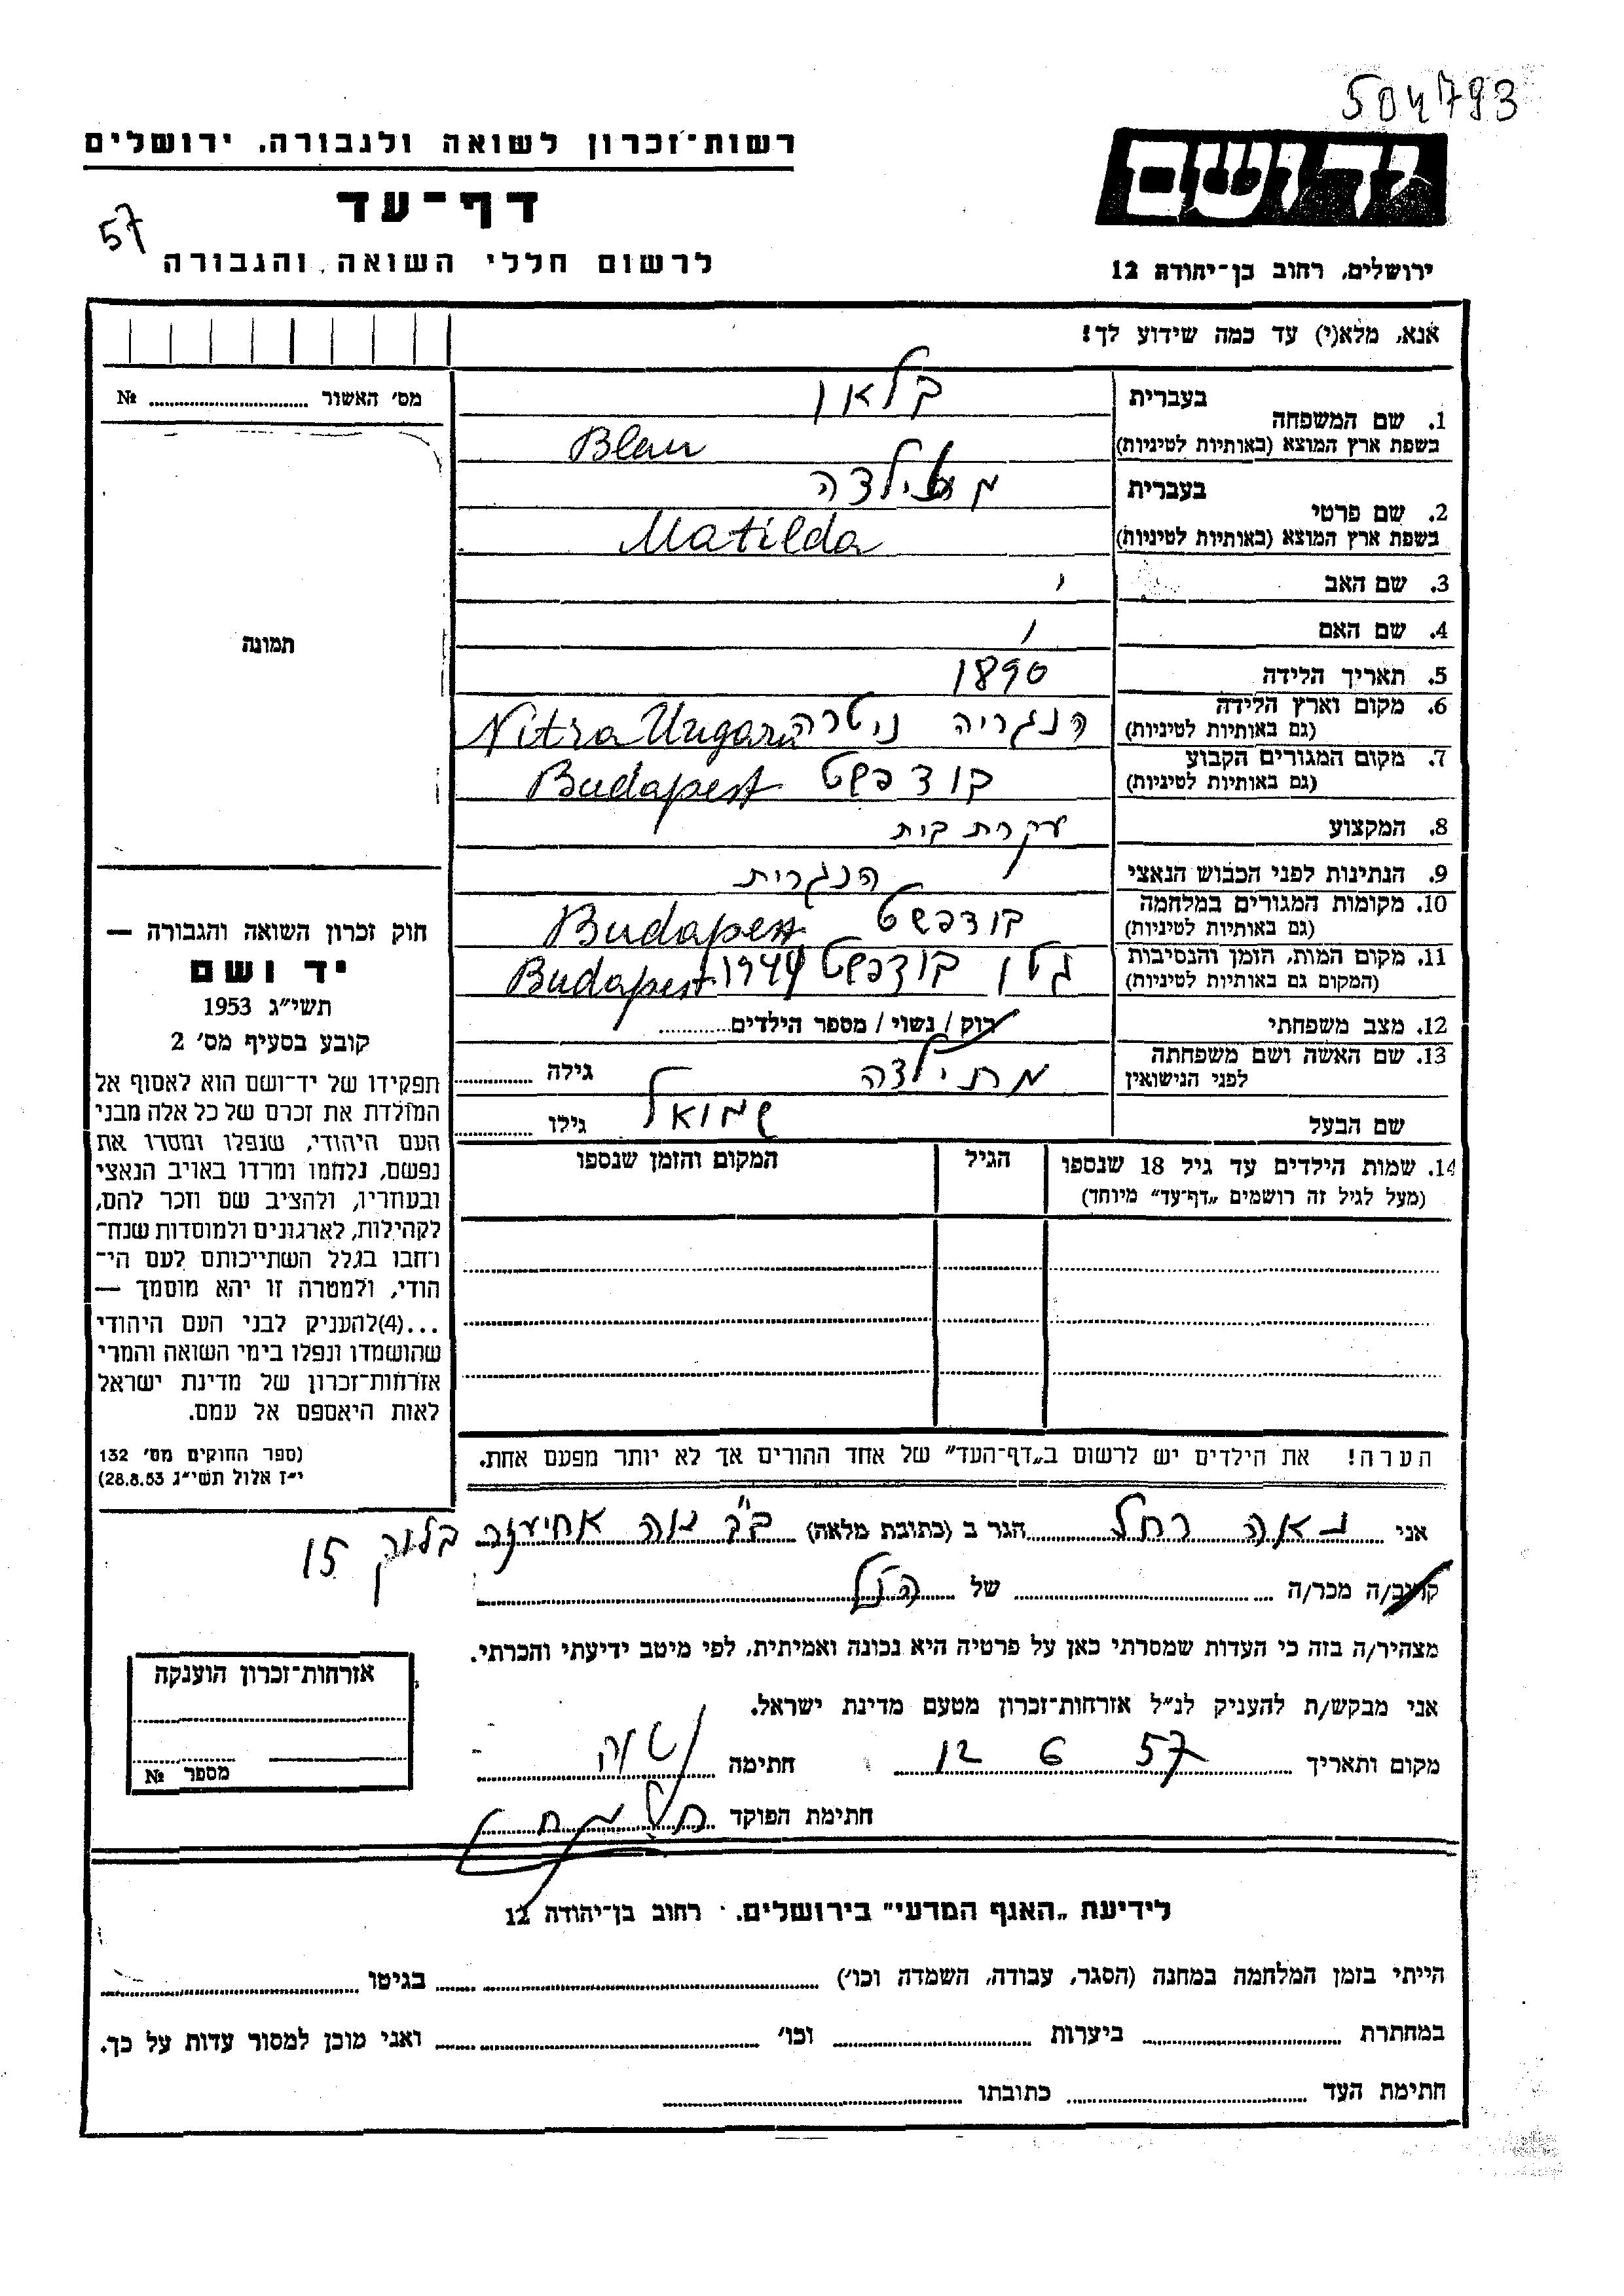 504793
רשות־זכרון לשואה ולגבורה, ירושלים
יד ושם
דף־עד
57
לרשום חללי השואה והגבורה
ירושלים, רחוב בן־יהודה 12
אנא, מלא(י) עד כמה שידוע לך!
מס׳ האשור № 
1. שם המשפחה בעברית בלאו
בשפת ארץ המוצא (באותיות לטיניות) Blau
2. שם פרטי בעברית מטילדה
בשפת ארץ המוצא (באותיות לטיניות) Matilda
3. שם האב
4. שם האם
תמונה
5. תאריך הלידה 1890
6. מקום וארץ הלידה (גם באותיות לטיניות) הנגריה ניטרה Nitra Ungarn
7. מקום המגורים הקבוע (גם באותיות לטיניות) בודפשט Budapest
8. המקצוע עקרת בית
9. הנתינות לפני הכבוש הנאצי הנגרית
10. מקומות המגורים במלחמה (גם באותיות לטיניות) בודפשט Budapest
11. מקום המות, הזמן והנסיבות (המקום גם באותיות לטיניות) גטו בודפשט 1944 Budapest
12. מצב משפחתי רוק / נשוי / מספר הילדים
13. שם האשה ושם משפחתה לפני הנישואין מתילדה גילה
שם הבעל שמואל גילו
14. שמות הילדים עד גיל 18 שנספו הגיל המקום והזמן שנספו
(מעל לגיל זה רושמים „דף־עד״ מיוחד)
חוק זכרון השואה והגבורה —
יד ושם
תשי״ג 1953
קובע בסעיף מס׳ 2
תפקידו של יד־ושם הוא לאסוף אל
המולדת את זכרם של כל אלה מבני
העם היהודי, שנפלו ומסרו את
נפשם, נלחמו ומרדו באויב הנאצי
ובעוזריו, ולהציב שם וזכר להם,
לקהילות, לארגונים ולמוסדות שנח־
רבו בגלל השתייכותם לעם הי־
הודי, ולמטרה זו יהא מוסמך —
...(4)להעניק לבני העם היהודי
שהושמדו ונפלו בימי השואה והמרי
אזרחות־זכרון של מדינת ישראל
לאות היאספם אל עמם.
(ספר החוקים מס׳ 132
י״ז אלול תשי״ג 28.8.53)
הערה! את הילדים יש לרשום ב„דף־העד״ של אחד ההורים אך לא יותר מפעם אחת.
אני רחל הגר ב (כתובת מלאה) אחיעזר בלוק 15
קרוב/ה מכר/ה של הנ״ל
מצהיר/ה בזה כי העדות שמסרתי כאן על פרטיה היא נכונה ואמיתית, לפי מיטב ידיעתי והכרתי.
אני מבקש/ת להעניק לנ״ל אזרחות־זכרון מטעם מדינת ישראל.
מקום ותאריך 12 6 57 חתימה
חתימת הפוקד
אזרחות־זכרון הוענקה
מספר №
לידיעת „האגף המדעי״ בירושלים, רחוב בן־יהודה 12
הייתי בזמן המלחמה במחנה (הסגר, עבודה, השמדה וכו׳) בגיטו
במחתרת ביערות וכו׳ ואני מוכן למסור עדות על כך.
חתימת העד כתובתו